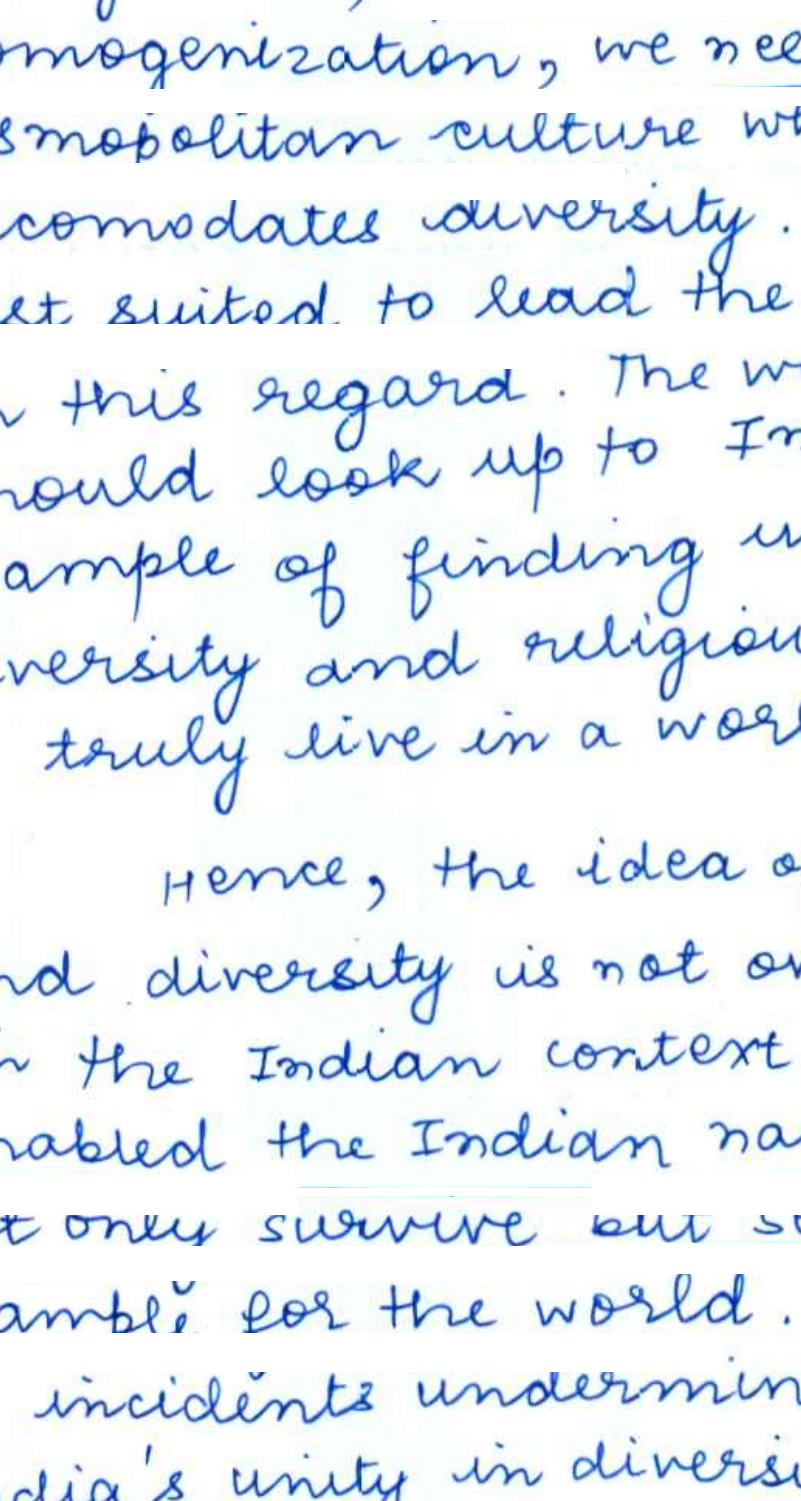 omogenization, we nee
smopolitan culture wh
comodates diversity.
et suited to lead the
n this regard. The w
hould look up to In
ample of finding un
versity and religiou
truly live in a wor
Hence, the idea o
nd diversity is not on
n the Indian context
nabled the Indian na
t only survive but s
ample for the world.
incidents undermin
dia's unity in diversi